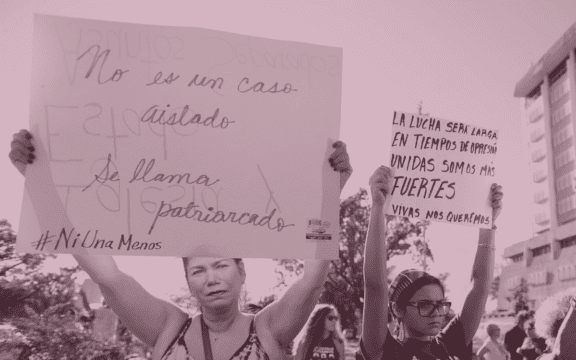 No es un caso
aislado
Se llama
patriarcado
#NiUnaMenos
LA LUCHA SERÁ LARGA
EN TIEMPOS DE OPRESIÓN
UNIDAS SOMOS MÁS
FUERTES
VIVAS NOS QUEREMOS